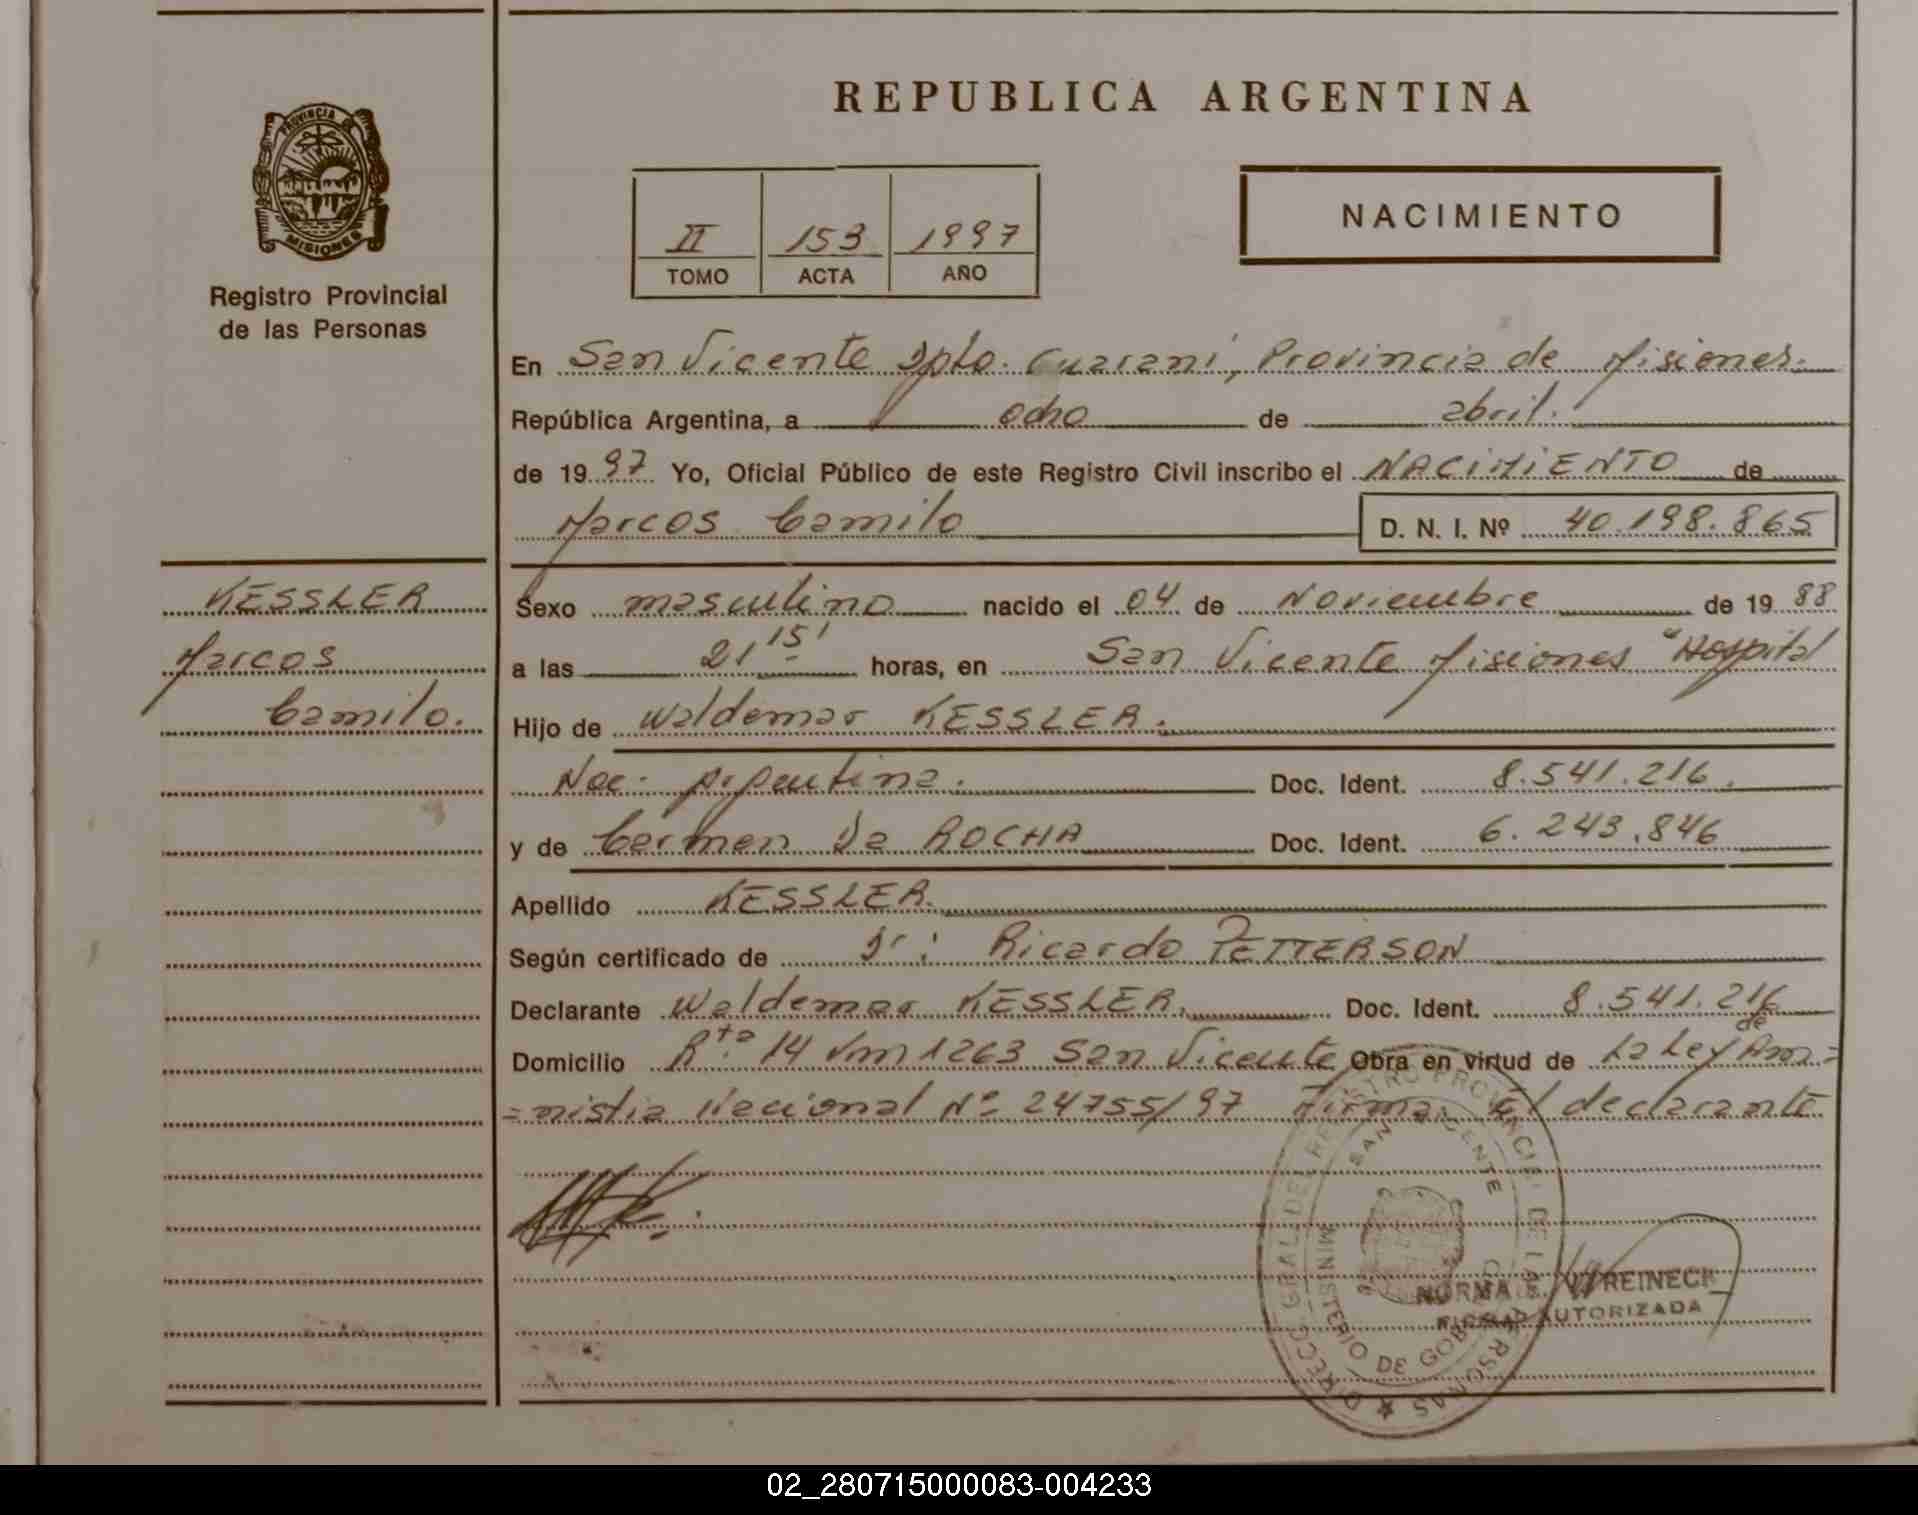 REPUBLICA ARGENTINA
PROVINCIA DE MISIONES
Registro Provincial
de las Personas
II 153 1997
TOMO ACTA AÑO
NACIMIENTO
En San Vicente Dpto. Guaraní, Provincia de Misiones.
República Argentina, a ocho de abril.
de 1997 Yo, Oficial Público de este Registro Civil inscribo el NACIMIENTO de
Marcos Camilo D. N. I. Nº 40.198.865
KESSLER
Marcos
Camilo.
Sexo masculino nacido el 04 de Noviembre de 1988
a las 21 15' horas, en San Vicente Misiones "Hospital
Hijo de Waldemar KESSLER.
Nac. Argentina. Doc. Ident. 8.541.216.
y de Carmen Da ROCHA Doc. Ident. 6.243.846
Apellido KESSLER.
Según certificado de Dr: Ricardo PETTERSON
Declarante Waldemar KESSLER. Doc. Ident. 8.541.216
Domicilio Rta. 14 Km 1263 San Vicente Obra en virtud de La Ley de Am=
=nistia Nacional Nº 24755/97 Firma: El declarante
DIRECC. GRAL. DEL REGISTRO PROVINCIAL DE LAS PERSONAS
SAN VICENTE
MINISTERIO DE GOBIERNO
NORMA
AUTORIZADA
02_280715000083-004233